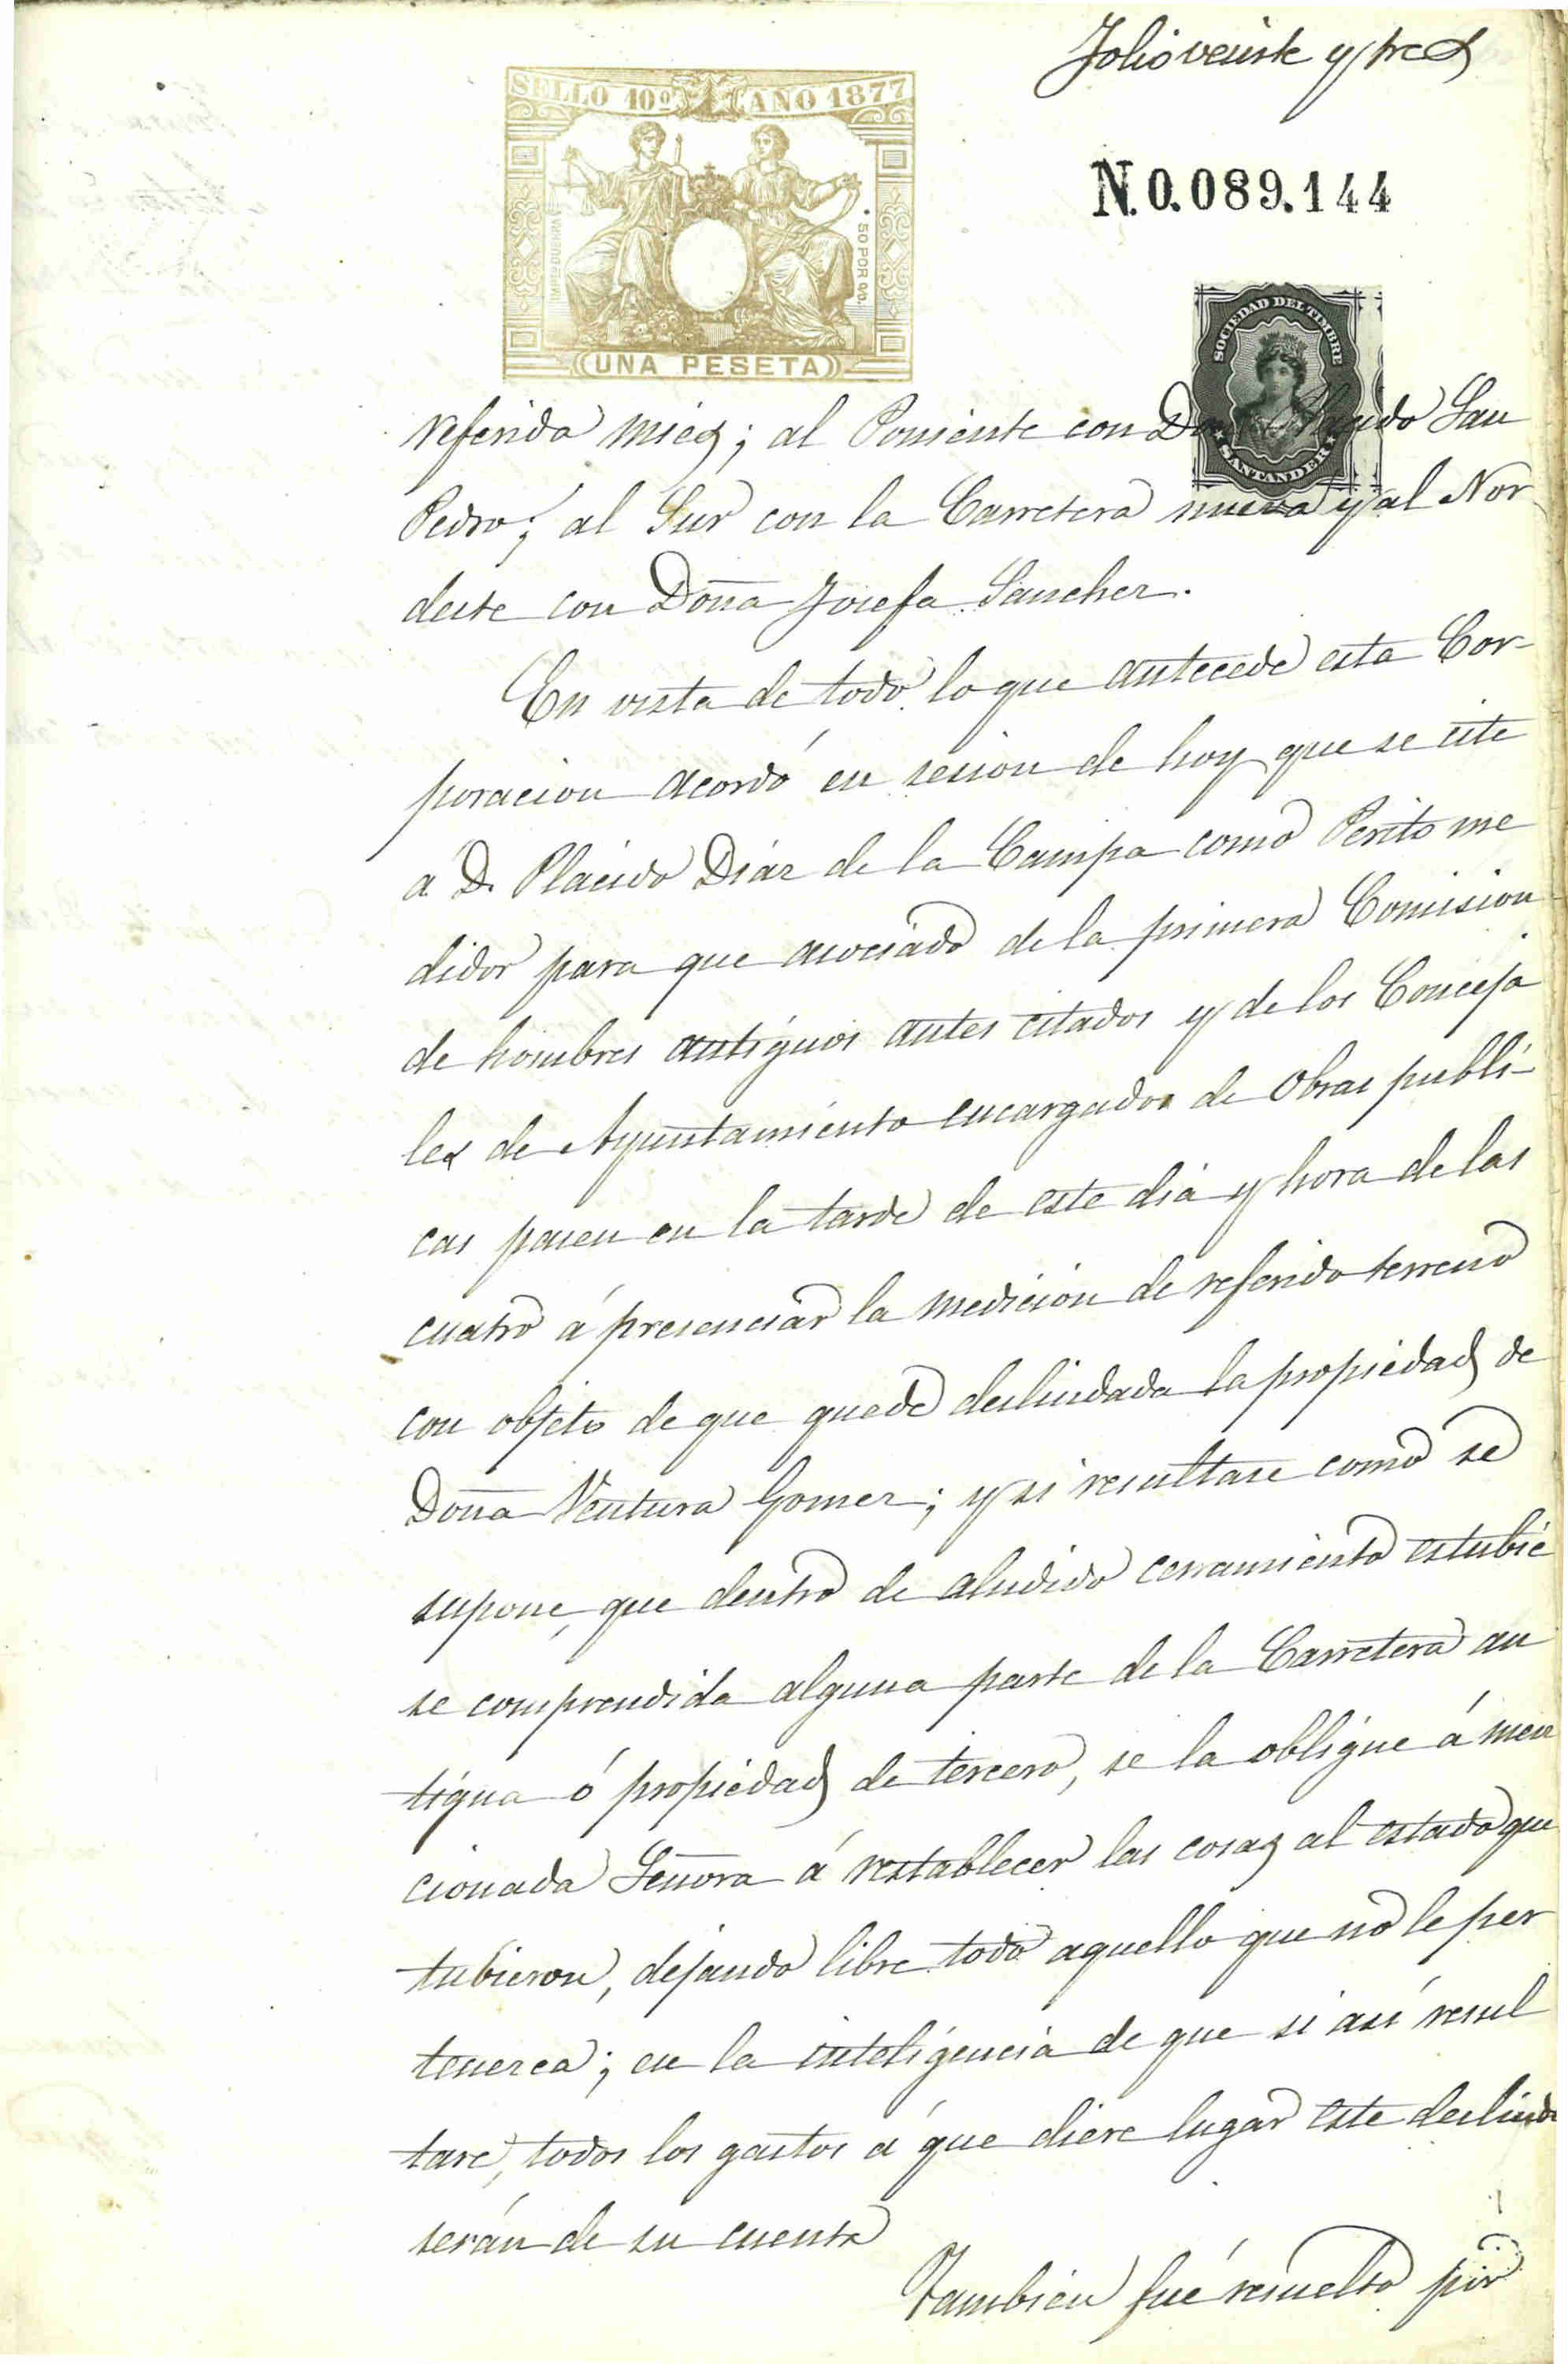 Folio veinte y tres
SELLO 10º AÑO 1877
N.0.089.144
50 POR %.
UNA PESETA
SOCIEDAD DEL TIMBRE
SANTANDER
referida mies; al Poniente con Don Placido San
Pedro; al Sur con la Carretera nueva y al Nor
deste con Doña Josefa Sanchez.
En vista de todo lo que antecede esta Cor-
poracion acordó en sesion de hoy que se cite
á D. Placido Diaz de la Campa como Perito me
didor para que asociado de la primera Comision
de hombres antiguos antes citados y de los Conceja
les de Ayuntamiento encargados de Obras publi-
cas pasen en la tarde de este dia y hora de las
cuatro á presenciar la medicion de referido terreno
con objeto de que quede deslindada la propiedad de
Doña Ventura Gomez; y si resultase como se
supone, que dentro de aludido cerramiento estubie
se comprendida alguna parte de la Carretera an
tigua ó propiedad de tercero, se la obligue á men
cionada Señora á restablecer las cosas al estado que
tubieron, dejando libre todo aquello que no le per
tenezca; en la inteligencia de que si asi resul
tare, todos los gastos á que diere lugar este deslinde
serán de su cuenta
Tambien fué resuelto por